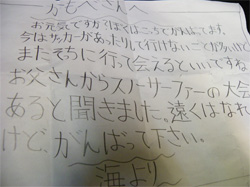 かもべさんへ
お元気ですかぼくはこっちでがんばってます。
今はサッカーがあったりして行けないことがおおいけど
またそちに行って会えるといいですね
お父さんからスノーサーファーの大会
あると聞きました。遠くはなれ
けど、がんばって下さい。
海より